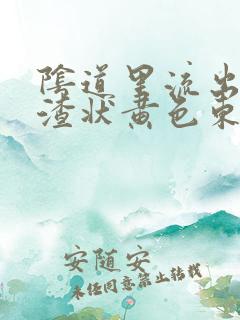 陰道里流出
渣状黄色東
安随安
未任同意禁止转载